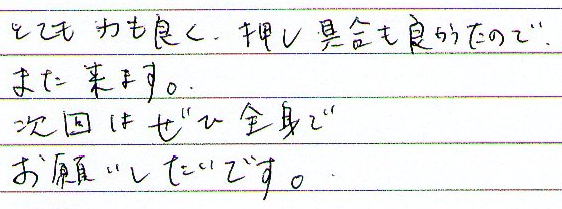 とても力も良く、押し具合も良かったので、
また来ます。
次回はぜひ全身で
お願いしたいです。